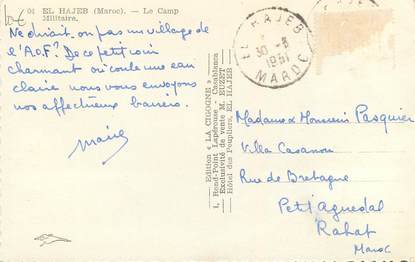 04 EL HAJEB (Maroc). — Le Camp
Militaire.
Ne dirait-on pas un village de
l'A.O.F? De ce petit coin
charmant où coule une eau
claire nous vous envoyons
nos affectueux baisers.
EL HAJEB
30-8
1951
MAROC
Edition « LA CIGOGNE »
1, Rond-Point Lapérouse - Casablanca
Exclusivité de vente M. EUZET
Hôtel des Peupliers, EL HAJEB
Madame & Monsieur Pasquier
Villa Casanou
Rue de Bretagne
Petit Aguedal
Rabat
Maroc